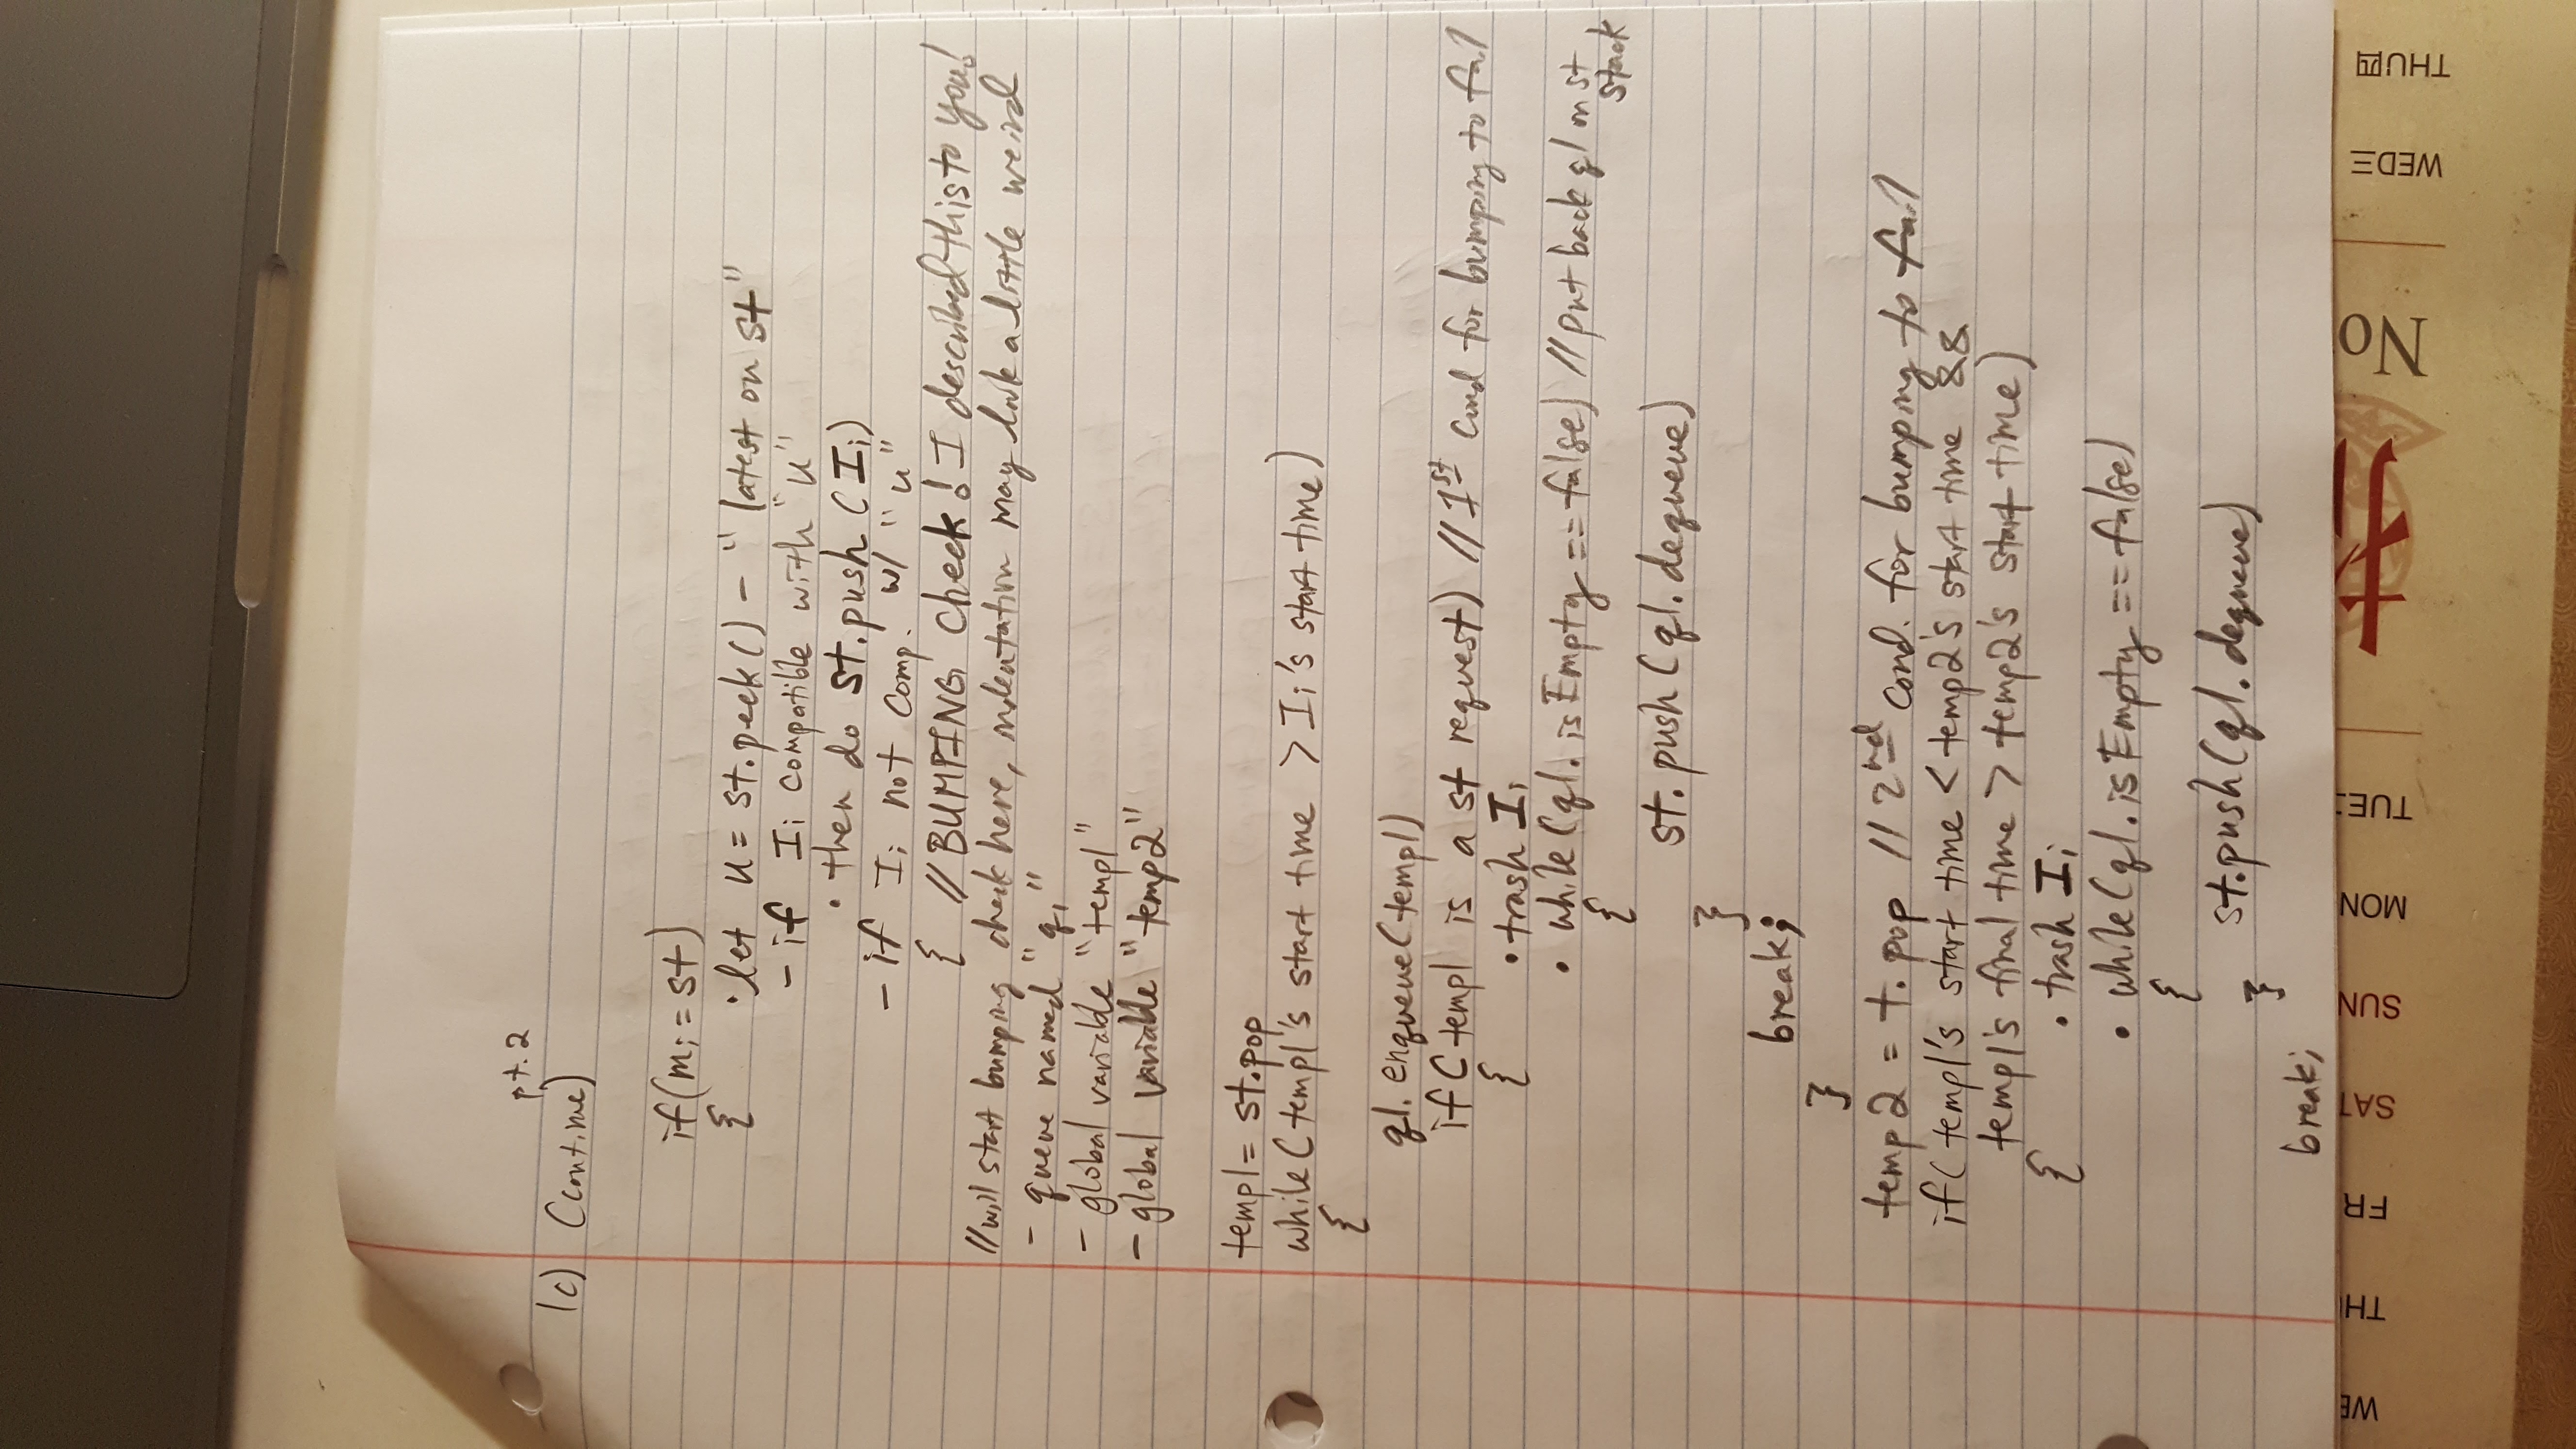 pt. 2
1c) (continue)
if(mi = st)
{ • let u = st.peek() - "latest on st"
- if Ii compatible with "u"
• then do st.push (Ii)
- if Ii not comp. w/ "u"
{ // BUMPING Check! I described this to you!
//will start bumping check here, indentation may look a little weird
- queue named "q1"
- global variable "temp1"
- global variable "temp2"
temp1 = st.pop
while (temp1's start time > Ii's start time)
{
q1. enqueue(temp1)
if (temp1 is a st request) // 1st cond for bumping to fail
{ • trash Ii
• while (q1. isEmpty == false) // put back q1 on st
stack
{
st. push (q1. dequeue)
}
break;
}
temp2 = t. pop // 2nd cond. for bumping to fail
if( temp1's start time < temp2's start time &&
temp1's final time > temp2's start time)
{ • trash Ii
• while (q1. isEmpty == false)
{
st.push (q1. dequeue)
}
break;
WE
TH
FR
SAT
SUN
MON
TUE
No
WED三
THU四